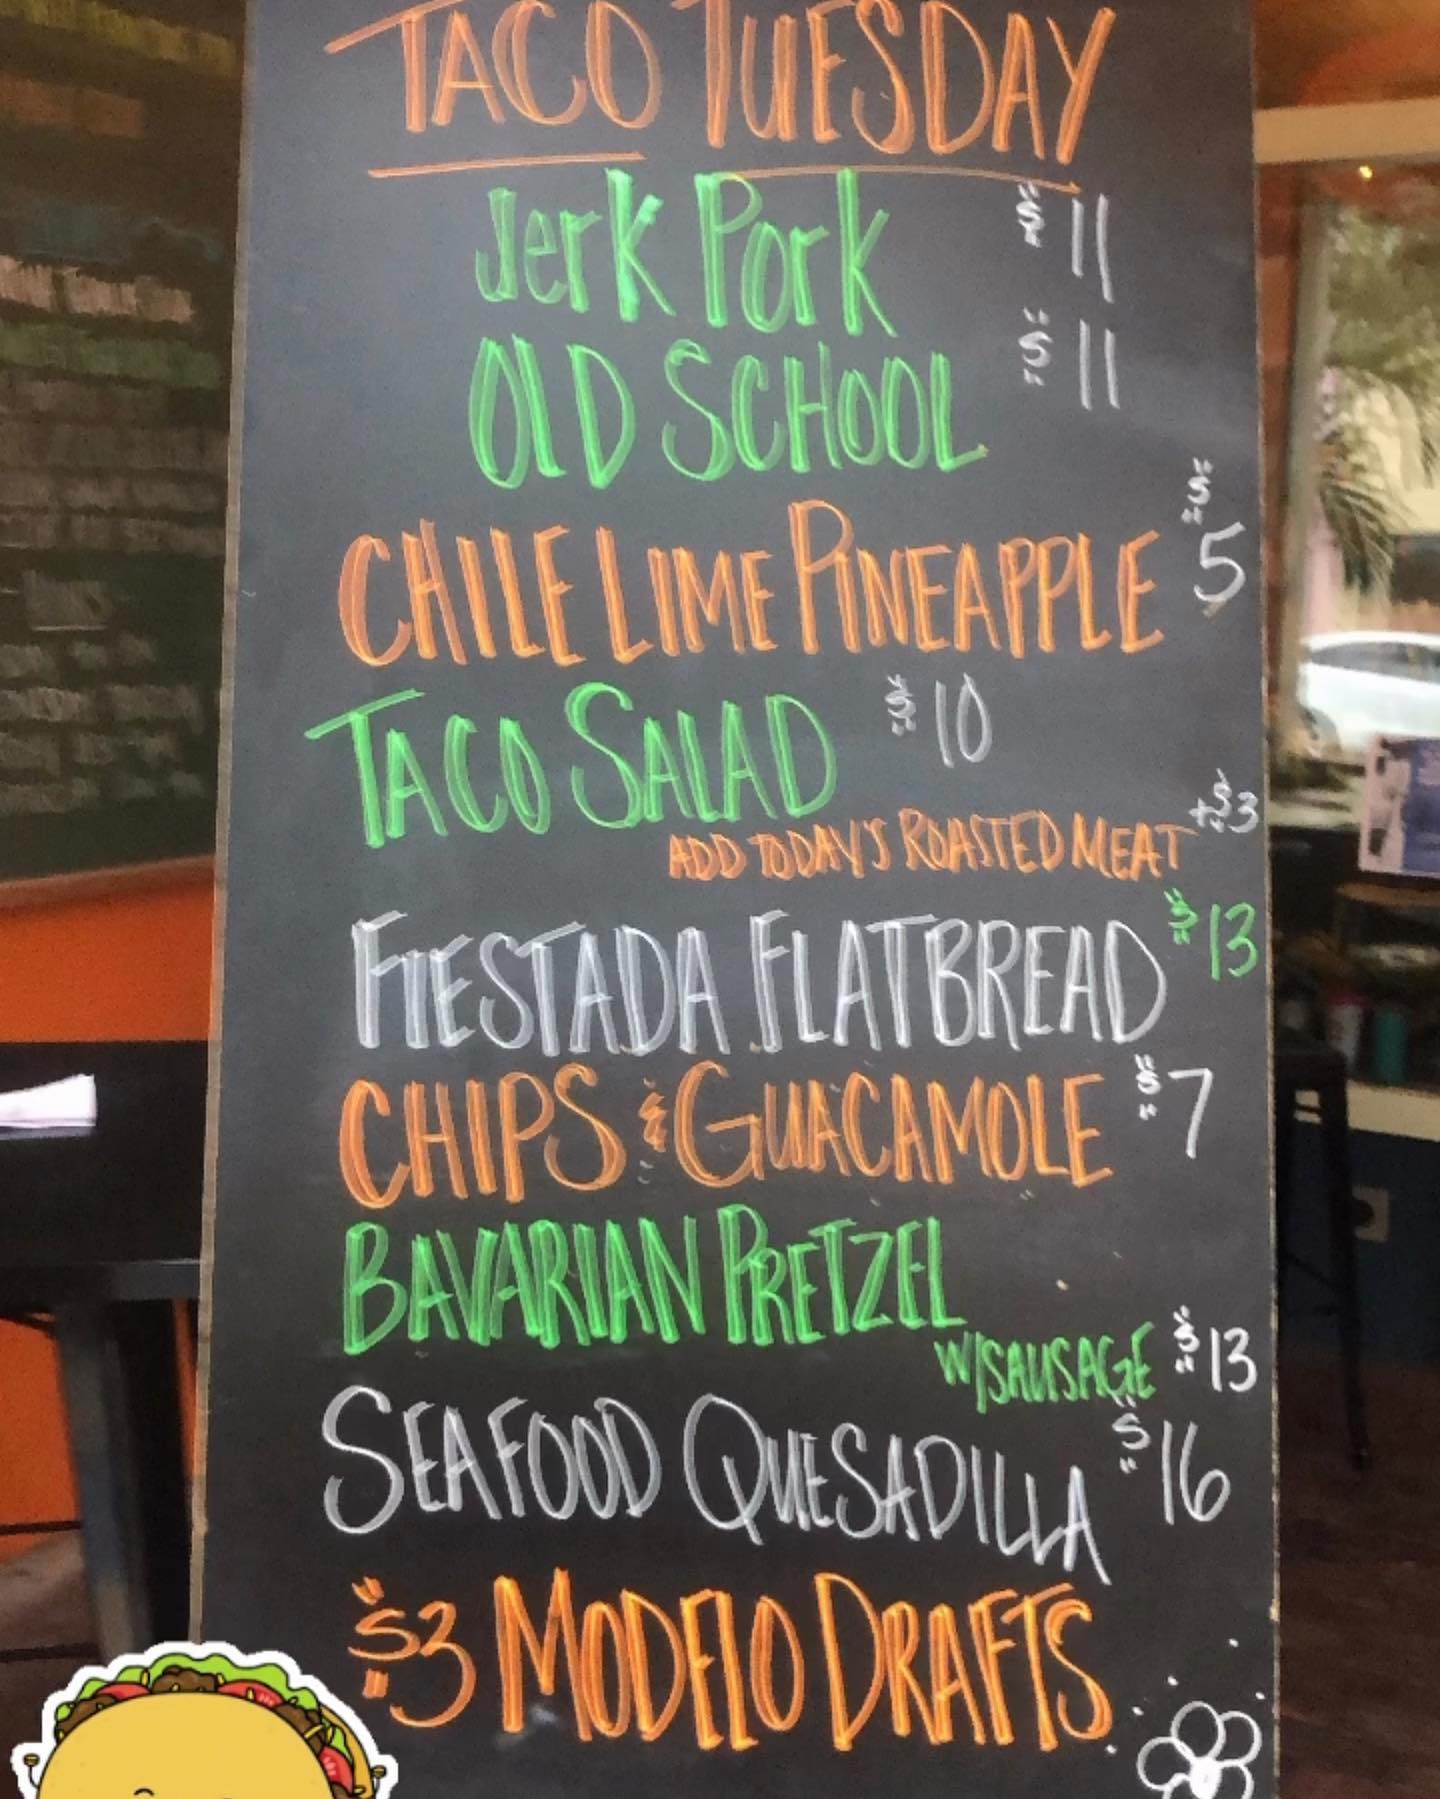 TACO TUESDAY
Jerk Pork $11
OLD SCHOOL $11
CHILE LIME PINEAPPLE $5
TACO SALAD $10
ADD TODAY'S ROASTED MEAT +$3
FIESTADA FLATBREAD $13
CHIPS & GUACAMOLE $7
BAVARIAN PRETZEL
W/SAUSAGE $13
SEAFOOD QUESADILLA $16
$3 MODELO DRAFTS